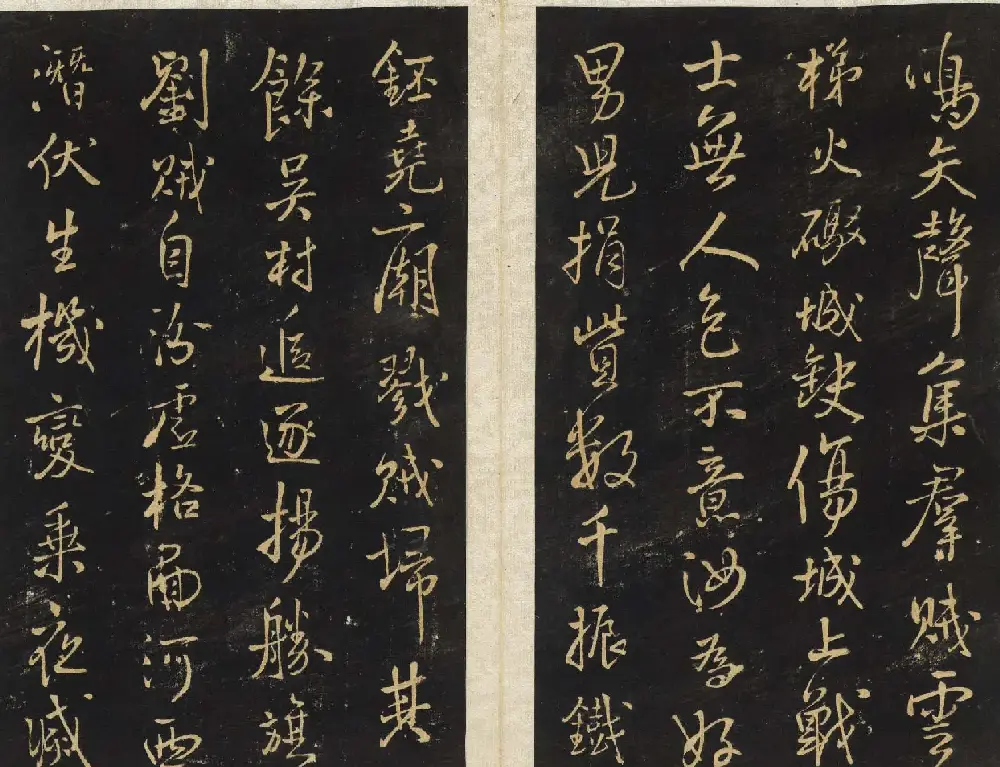 鳴矢聲集群賊雲
梯火礮城缺傷城上戰
士無人色不意汝為好
男兒捐貲數千振鐵
鉦堯廟戮賊埽其
餘吴村追逐揚勝旗
劉賊自汾虛格圖河西
潛伏生機變乘夜減